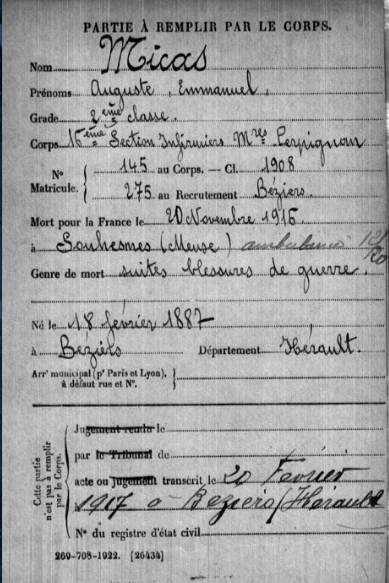 PARTIE À REMPLIR PAR LE CORPS.
Nom Micas
Prénoms Auguste, Emmanuel,
Grade 2ème classe.
Corps 16ème Section Infirmiers Mres Perpignan
N° Matricule. { 145 au Corps. — Cl. 1908
275 au Recrutement Béziers
Mort pour la France le 20 Novembre 1916
à Souhesmes (Meuse) ambulance 12/20
Genre de mort suites blessures de guerre.
Né le 18 février 1887
à Béziers Département Hérault.
Arrt municipal (pr Paris et Lyon), à défaut rue et N°. {
Cette partie n'est pas à remplir par le Corps.
Jugement rendu le
par le Tribunal de
acte ou jugement transcrit le 20 Février
1917 à Béziers (Hérault
N° du registre d'état civil
269-708-1922. [26434]